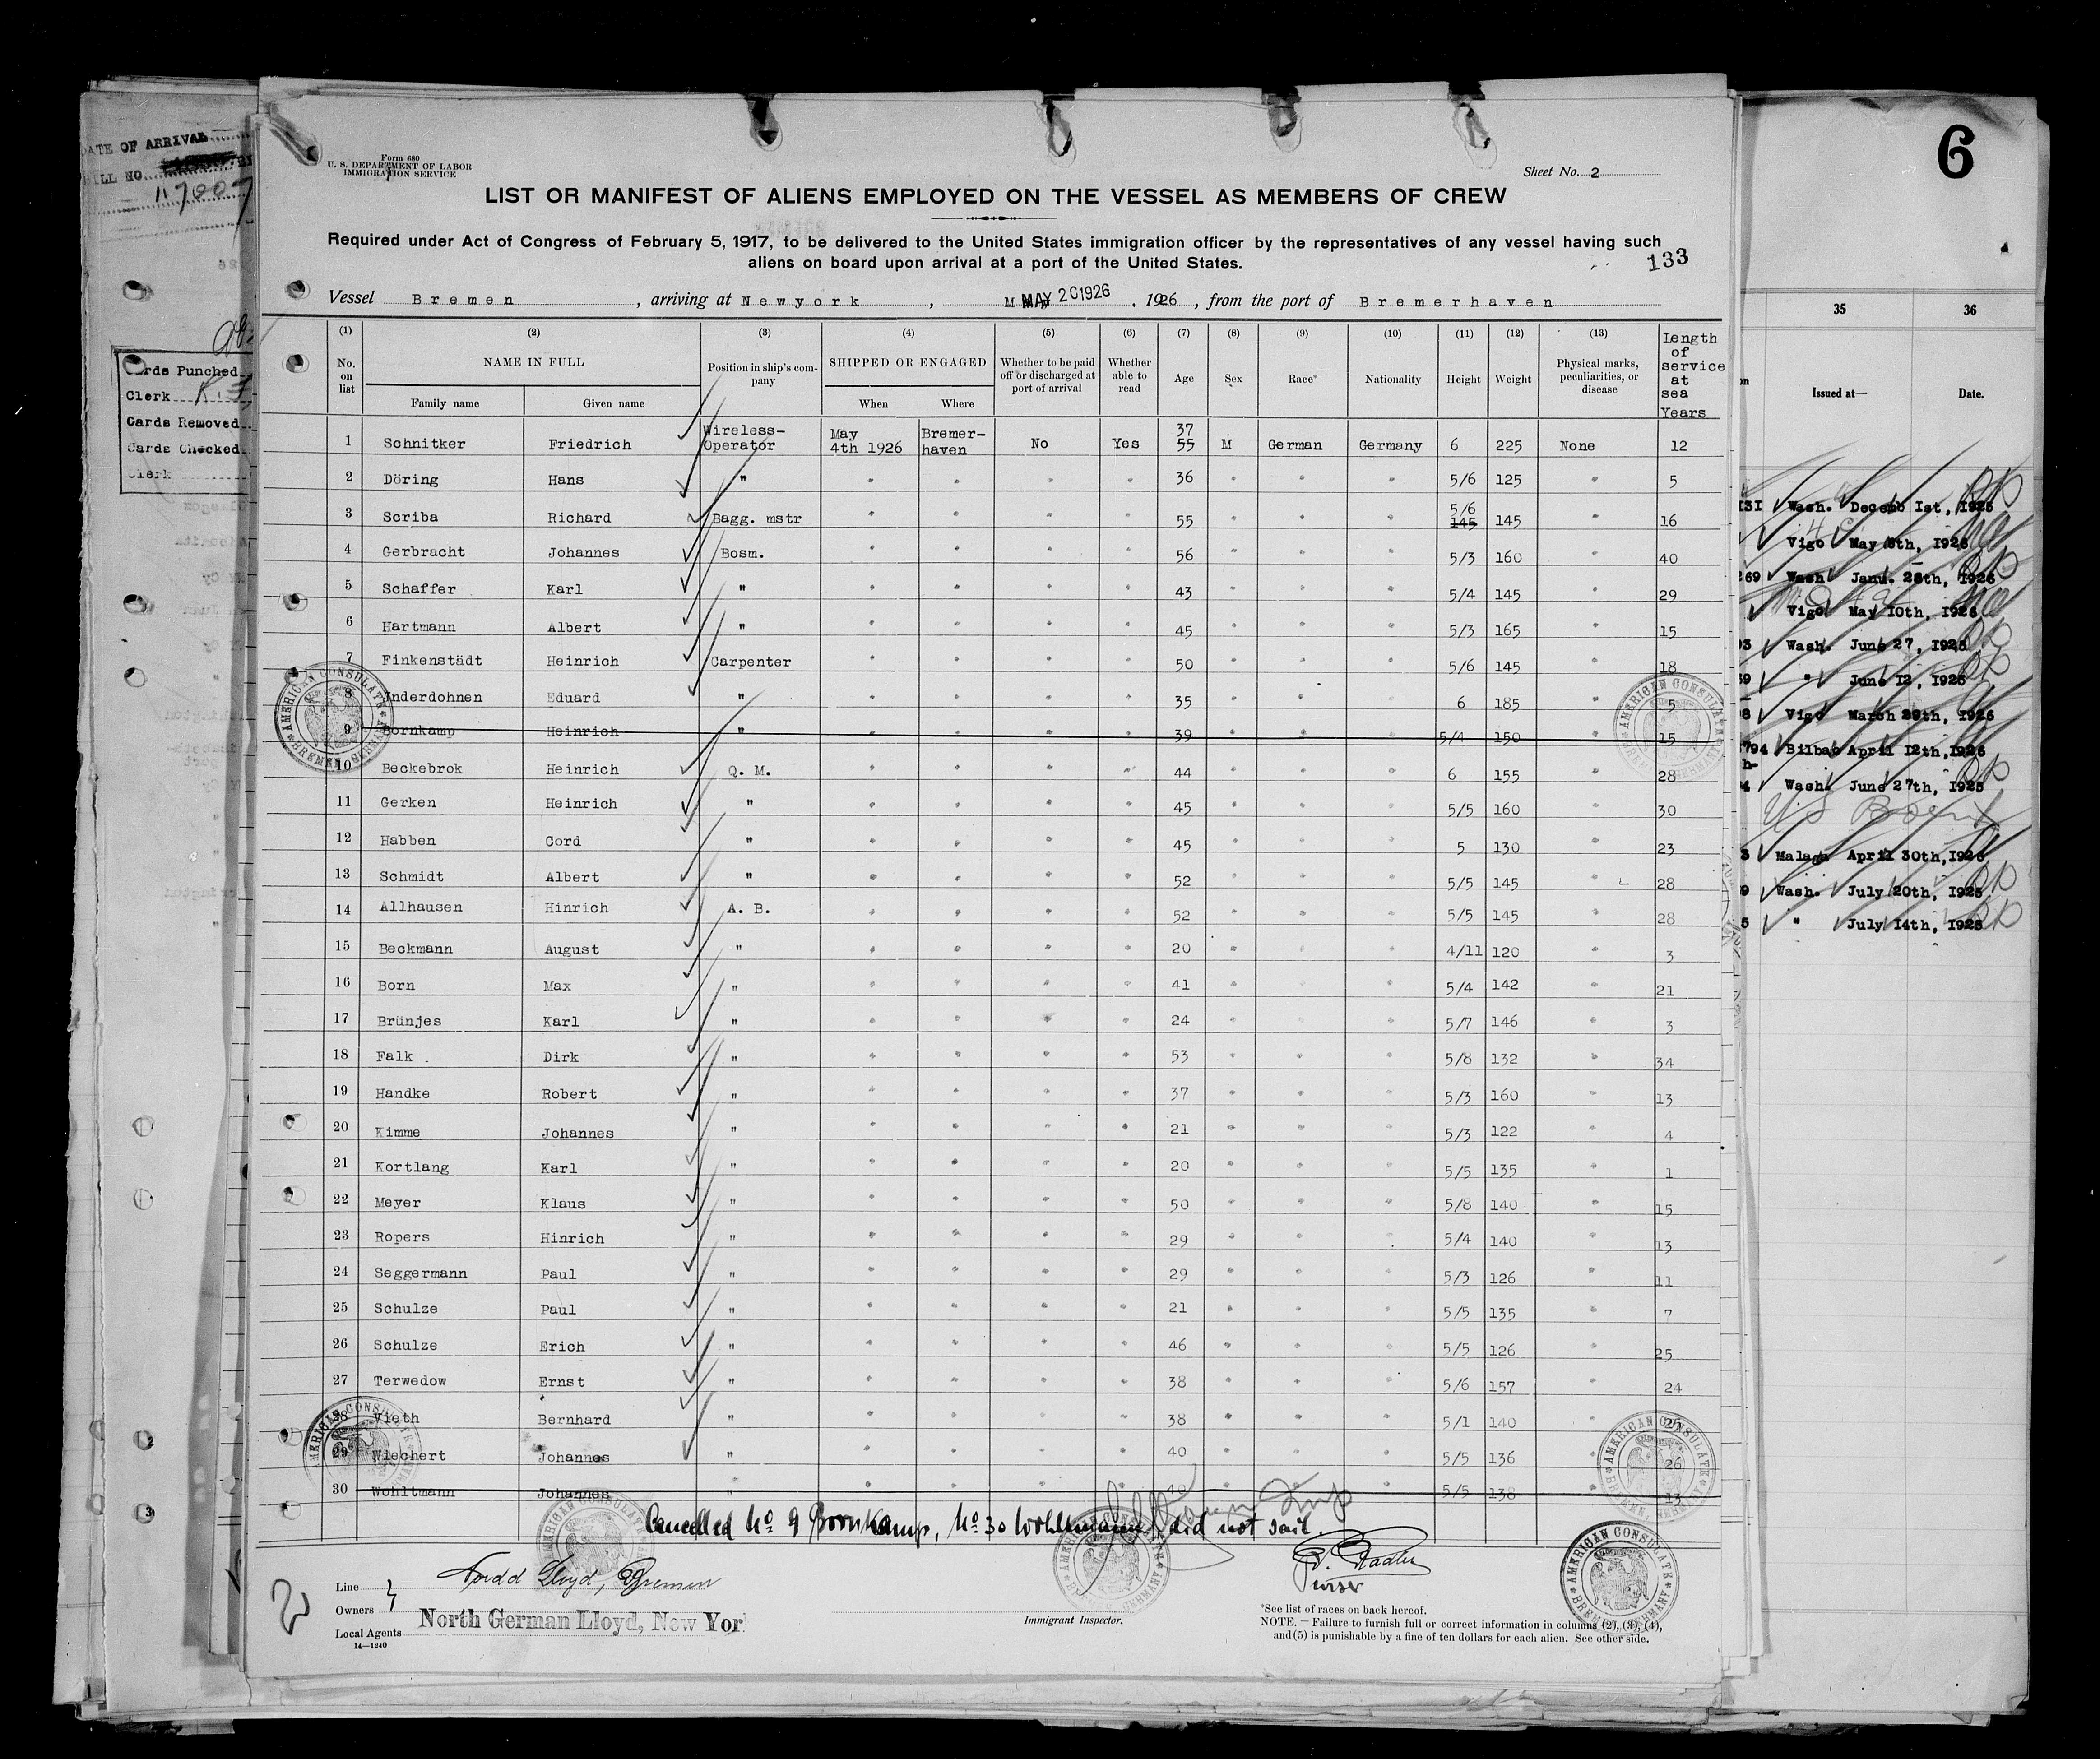 DATE OF ARRIVAL
BILL NO.
Cards Punched
Clerk
Cards Removed
Cards Checked
Clerk
Form 680
U. S. DEPARTMENT OF LABOR
IMMIGRATION SERVICE
Sheet No. 2
LIST OR MANIFEST OF ALIENS EMPLOYED ON THE VESSEL AS MEMBERS OF CREW
Required under Act of Congress of February 5, 1917, to be delivered to the United States immigration officer by the representatives of any vessel having such
aliens on board upon arrival at a port of the United States.
133
Vessel Bremen, arriving at Newyork, MAY 20 1926, 1926, from the port of Bremerhaven
(1) (2) (3) (4) (5) (6) (7) (8) (9) (10) (11) (12) (13)
No. on list NAME IN FULL Family name Given name Position in ship's company SHIPPED OR ENGAGED When Where Whether to be paid off or discharged at port of arrival Whether able to read Age Sex Race* Nationality Height Weight Physical marks, peculiarities, or disease Length of service at sea Years
1 Schnitker Friedrich Wireless-Operator May 4th 1926 Bremerhaven No Yes 37 55 M German Germany 6 225 None 12
2 Döring Hans " " " " " 36 " " " 5/6 125 " 5
3 Scriba Richard Bagg. mstr " " " " 55 " " " 5/6 145 145 " 16
4 Gerbracht Johannes Bosm. " " " " 56 " " " 5/3 160 " 40
5 Schaffer Karl " " " " " 43 " " " 5/4 145 " 29
6 Hartmann Albert " " " " " 45 " " " 5/3 165 " 15
7 Finkenstädt Heinrich Carpenter " " " " 50 " " " 5/6 145 " 18
8 Underdohnen Eduard " " " " " 35 " " " 6 185 " 5
9 Bornkamp Heinrich " " " " " 39 " " " 5/4 150 " 15
10 Beckebrok Heinrich Q. M. " " " " 44 " " " 6 155 " 28
11 Gerken Heinrich " " " " " 45 " " " 5/5 160 " 30
12 Habben Cord " " " " " 45 " " " 5 130 " 23
13 Schmidt Albert " " " " " 52 " " " 5/5 145 " 28
14 Allhausen Hinrich A. B. " " " " 52 " " " 5/5 145 " 28
15 Beckmann August " " " " " 20 " " " 4/11 120 " 3
16 Born Max " " " " " 41 " " " 5/4 142 " 21
17 Brünjes Karl " " " " " 24 " " " 5/7 146 " 3
18 Falk Dirk " " " " " 53 " " " 5/8 132 " 34
19 Handke Robert " " " " " 37 " " " 5/3 160 " 13
20 Kimme Johannes " " " " " 21 " " " 5/3 122 " 4
21 Kortlang Karl " " " " " 20 " " " 5/5 135 " 1
22 Meyer Klaus " " " " " 50 " " " 5/8 140 " 15
23 Ropers Hinrich " " " " " 29 " " " 5/4 140 " 13
24 Seggermann Paul " " " " " 29 " " " 5/3 126 " 11
25 Schulze Paul " " " " " 21 " " " 5/5 135 " 7
26 Schulze Erich " " " " " 46 " " " 5/5 126 " 25
27 Terwedow Ernst " " " " " 38 " " " 5/6 157 " 24
28 Vieth Bernhard " " " " " 38 " " " 5/1 140 "
29 Wiechert Johannes " " " " " 40 " " " 5/5 136 " 26
30 Wohltmann Johannes " " " " " 40 " " " 5/5 138 " 13
Cancelled No 9 Bornkamp, No 30 Wohltmann, did not sail.
AMERICAN CONSULATE
BREMEN, GERMANY
Line Nordd Lloyd, Bremen
Purser
Owners
Local Agents North German Lloyd, New Yor
14—1240
Immigrant Inspector.
*See list of races on back hereof.
NOTE. — Failure to furnish full or correct information in columns (2), (3), (4),
and (5) is punishable by a fine of ten dollars for each alien. See other side.
2
6
35 36
Issued at— Date.
Wash. Decemb 1st, 1925
Vigo May 8th, 1926
Wash. Janu. 28th, 1926
Vigo May 10th, 1926
Wash. June 27, 1925
" June 12, 1925
Vigo March 29th, 1926
Bilbao April 12th, 1926
Wash. June 27th, 1925
Malaga April 30th, 1926
Wash. July 20th, 1925
" July 14th, 1925